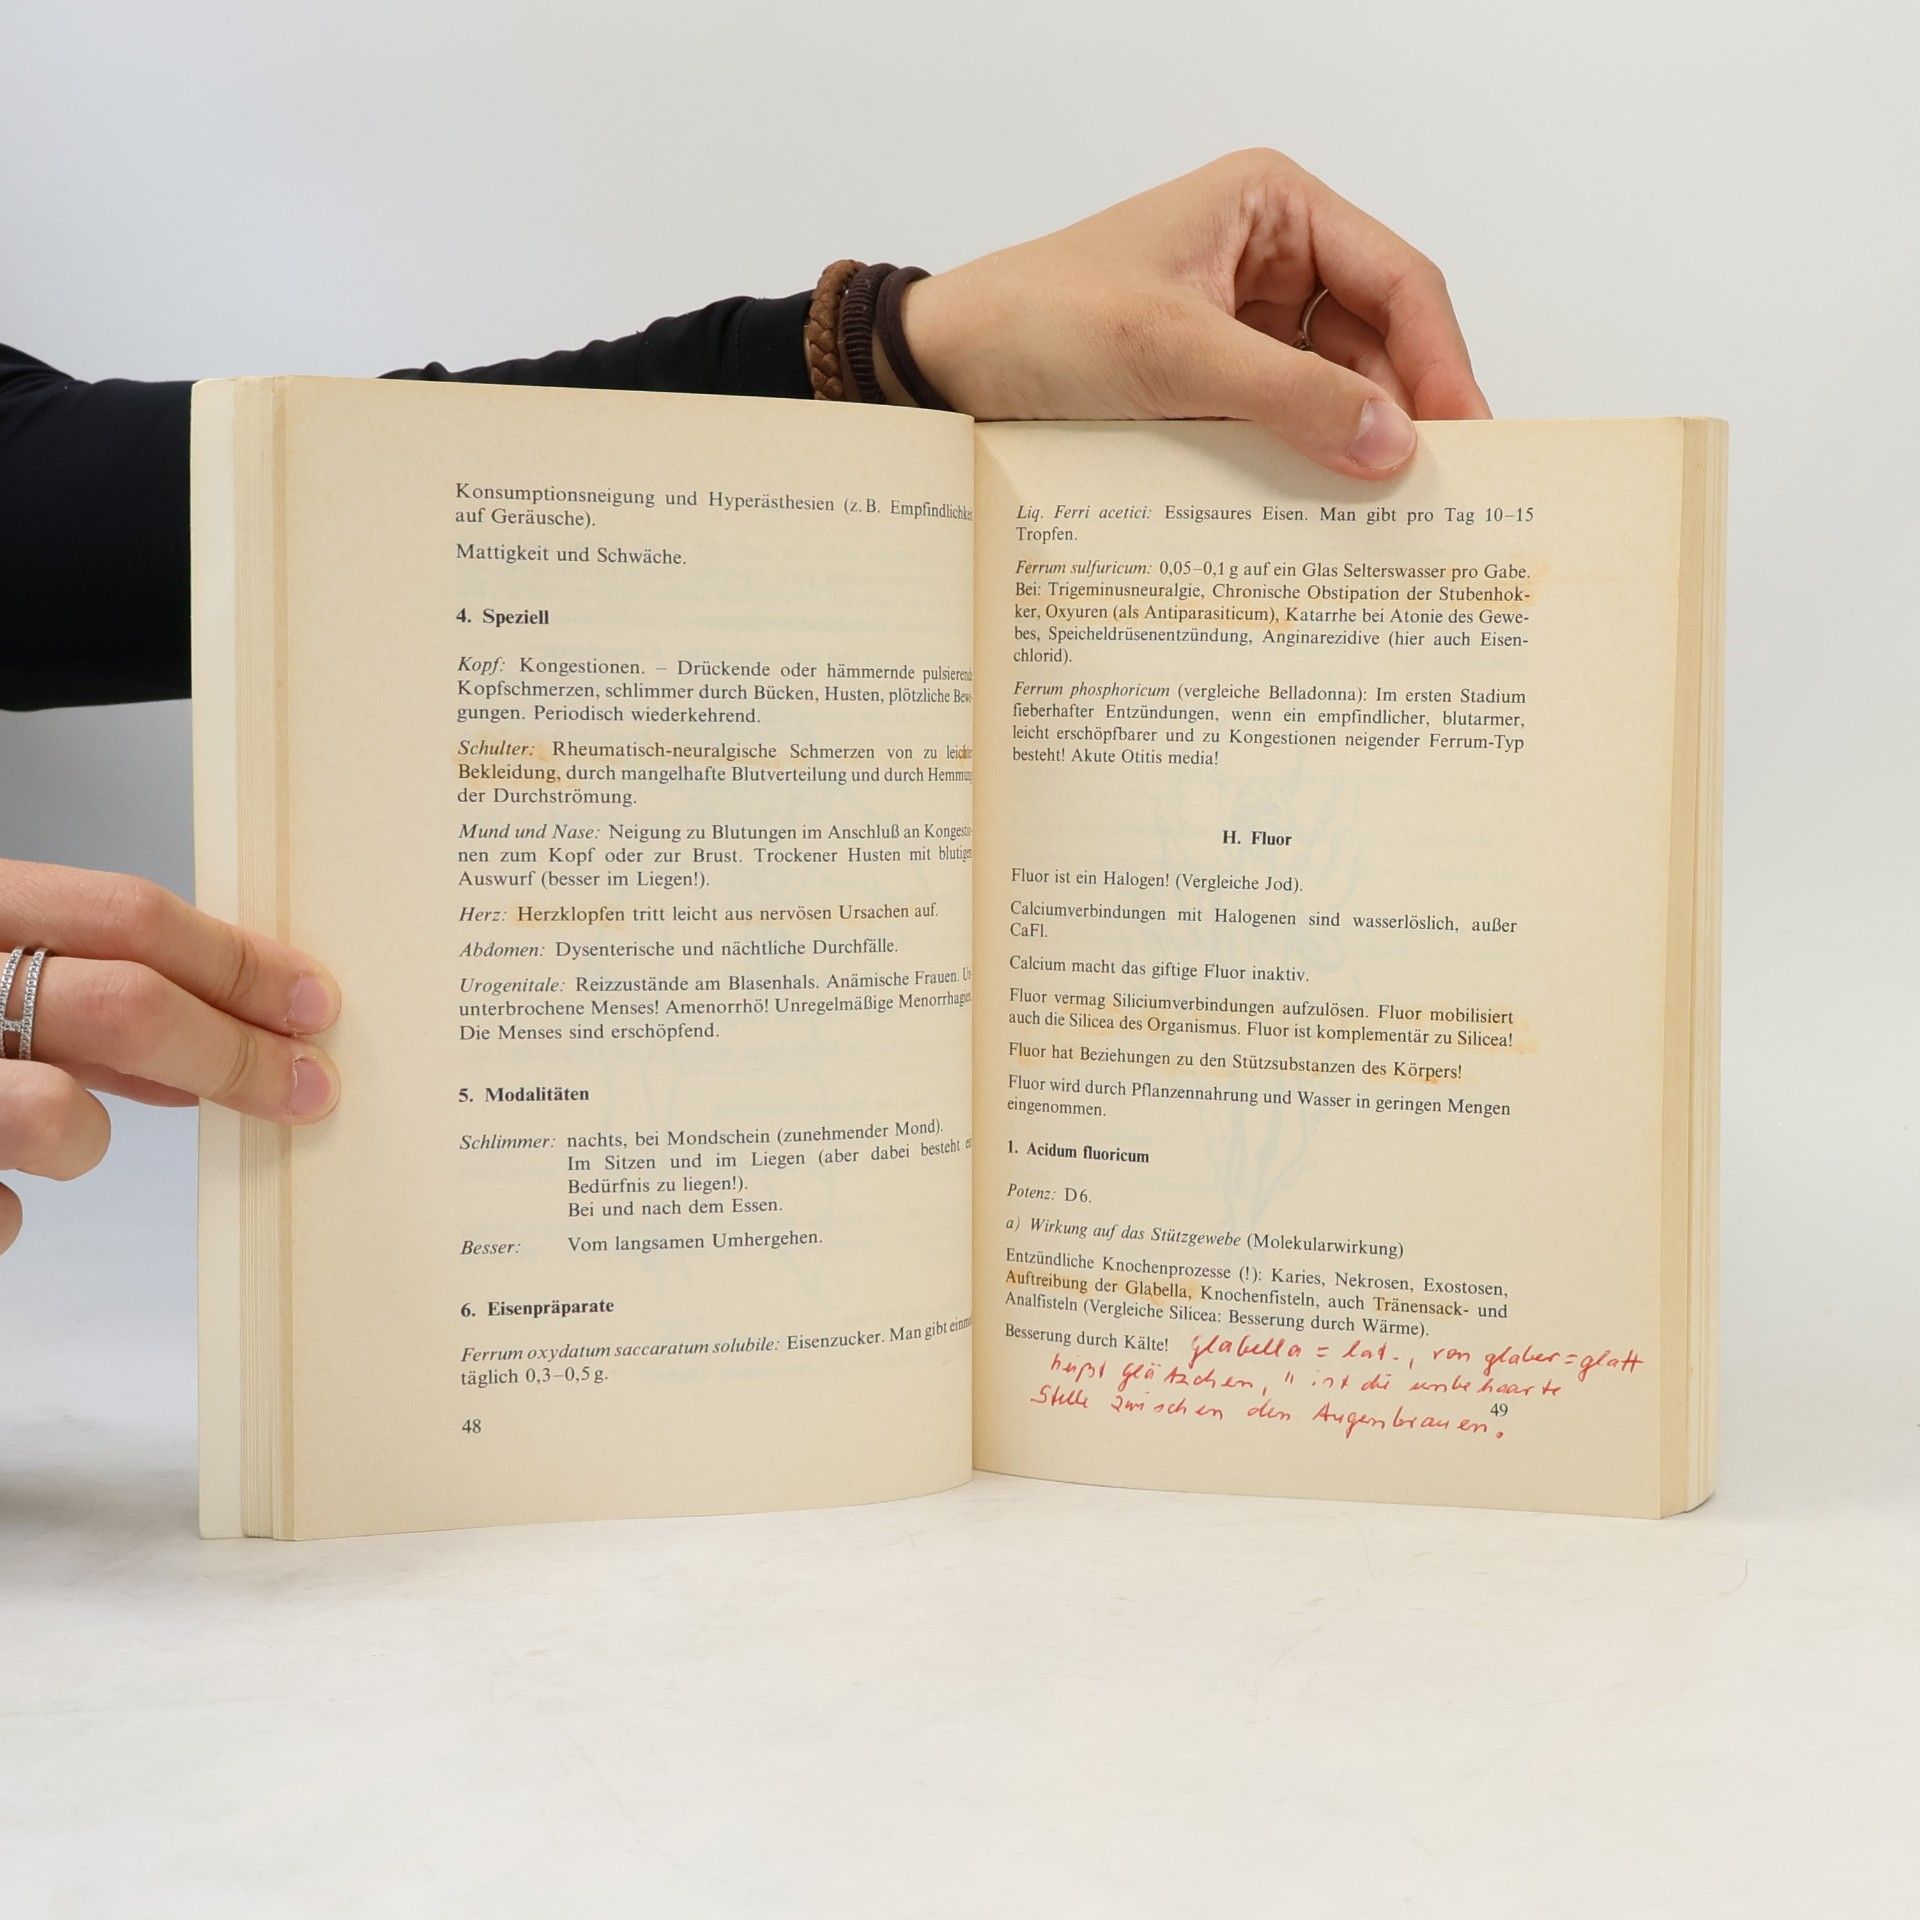 Konsumptionsneigung und Hyperästhesien (z. B. Empfindlichke
auf Geräusche).
Mattigkeit und Schwäche.
4. Speziell
Kopf: Kongestionen. – Drückende oder hämmernde pulsierende
Kopfschmerzen, schlimmer durch Bücken, Husten, plötzliche Bewe-
gungen. Periodisch wiederkehrend.
Schulter: Rheumatisch-neuralgische Schmerzen von zu leichter
Bekleidung, durch mangelhafte Blutverteilung und durch Hemmung
der Durchströmung.
Mund und Nase: Neigung zu Blutungen im Anschluß an Kongestio-
nen zum Kopf oder zur Brust. Trockener Husten mit blutigem
Auswurf (besser im Liegen!).
Herz: Herzklopfen tritt leicht aus nervösen Ursachen auf.
Abdomen: Dysenterische und nächtliche Durchfälle.
Urogenitale: Reizzustände am Blasenhals. Anämische Frauen. Un-
unterbrochene Menses! Amenorrhö! Unregelmäßige Menorrhagien
Die Menses sind erschöpfend.
5. Modalitäten
Schlimmer: nachts, bei Mondschein (zunehmender Mond).
Im Sitzen und im Liegen (aber dabei besteht
Bedürfnis zu liegen!).
Bei und nach dem Essen.
Besser: Vom langsamen Umhergehen.
6. Eisenpräparate
Ferrum oxydatum saccaratum solubile: Eisenzucker. Man gibt einma
täglich 0,3–0,5 g.
48
Liq. Ferri acetici: Essigsaures Eisen. Man gibt pro Tag 10–15
Tropfen.
Ferrum sulfuricum: 0,05–0,1 g auf ein Glas Selterswasser pro Gabe.
Bei: Trigeminusneuralgie, Chronische Obstipation der Stubenhok-
ker, Oxyuren (als Antiparasiticum), Katarrhe bei Atonie des Gewe-
bes, Speicheldrüsenentzündung, Anginarezidive (hier auch Eisen-
chlorid).
Ferrum phosphoricum (vergleiche Belladonna): Im ersten Stadium
fieberhafter Entzündungen, wenn ein empfindlicher, blutarmer,
leicht erschöpfbarer und zu Kongestionen neigender Ferrum-Typ
besteht! Akute Otitis media!
H. Fluor
Fluor ist ein Halogen! (Vergleiche Jod).
Calciumverbindungen mit Halogenen sind wasserlöslich, außer
CaFl.
Calcium macht das giftige Fluor inaktiv.
Fluor vermag Siliciumverbindungen aufzulösen. Fluor mobilisiert
auch die Silicea des Organismus. Fluor ist komplementär zu Silicea!
Fluor hat Beziehungen zu den Stützsubstanzen des Körpers!
Fluor wird durch Pflanzennahrung und Wasser in geringen Mengen
eingenommen.
1. Acidum fluoricum
Potenz: D6.
a) Wirkung auf das Stützgewebe (Molekularwirkung)
Entzündliche Knochenprozesse (!): Karies, Nekrosen, Exostosen,
Auftreibung der Glabella, Knochenfisteln, auch Tränensack- und
Analfisteln (Vergleiche Silicea: Besserung durch Wärme).
Besserung durch Kälte! glabella = lat., von glaber = glatt
heißt glätzchen, " ist die unbehaarte
Stelle zwischen den Augenbrauen.
49